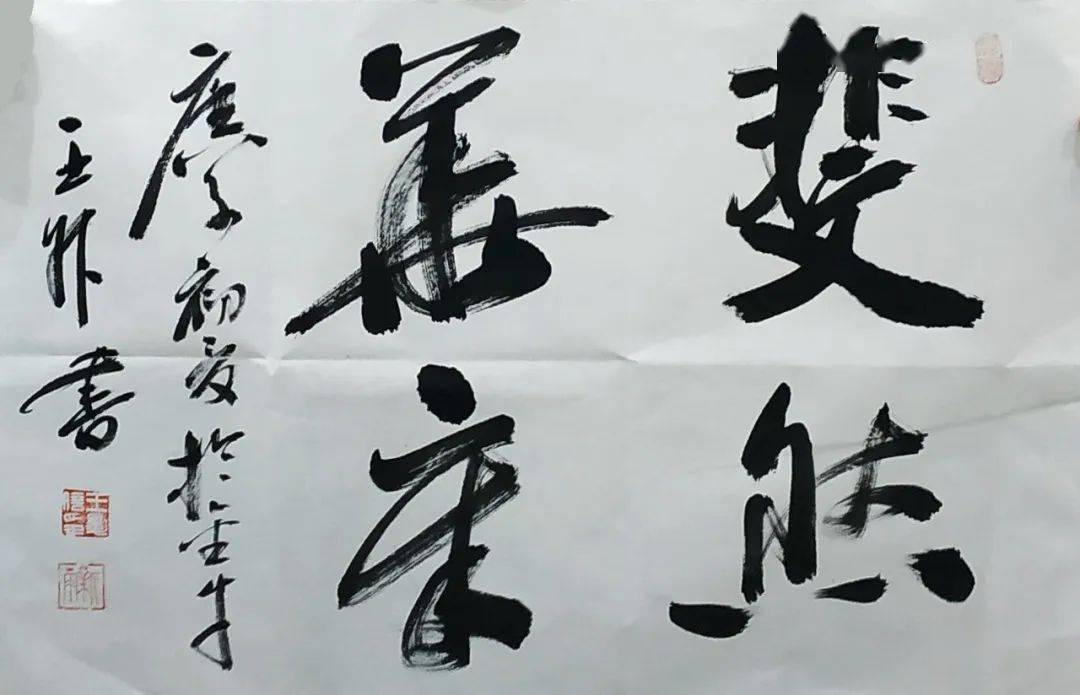 斐然
華章
庚子初夏於金牛
王 書